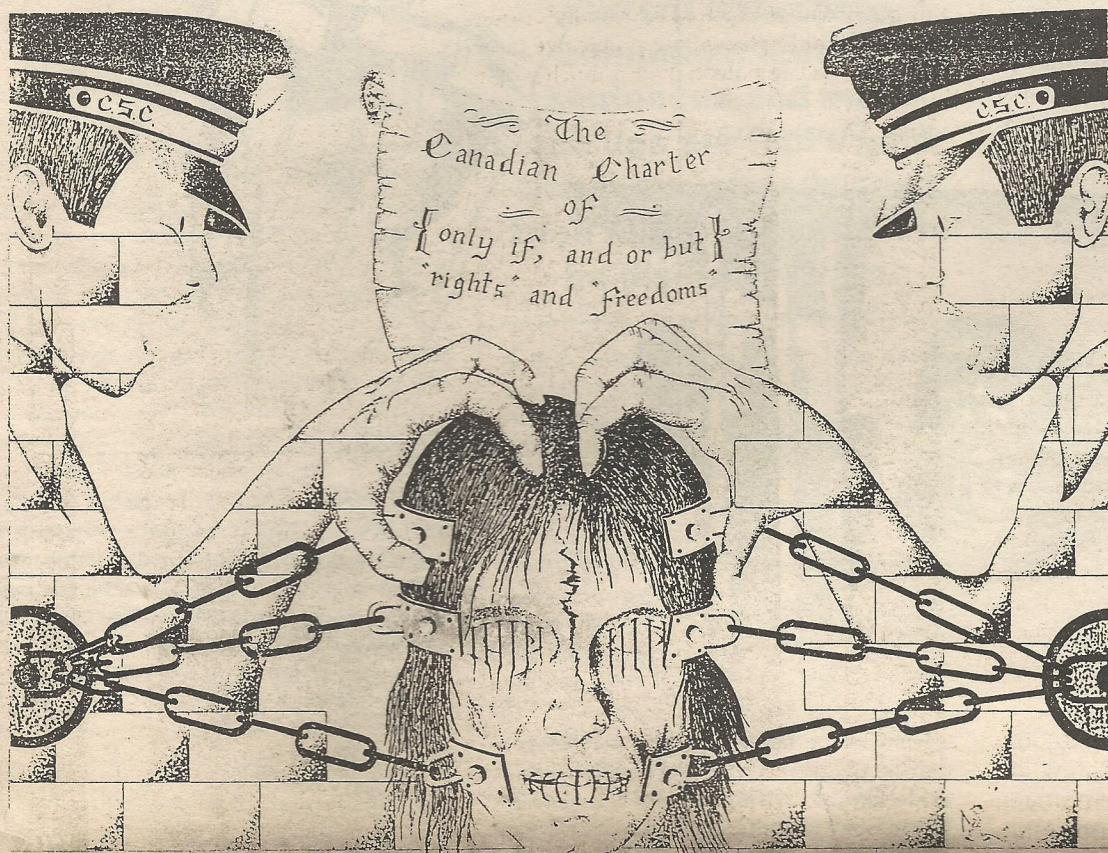 C.S.C
C.S.C.
The
Canadian Charter
of
{only if, and or but}
"rights" and "freedoms"